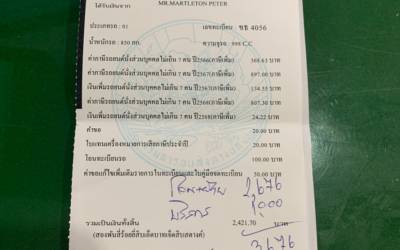 ได้รับเงินจาก MR.MARTLETON PETER
ประเภทรถ : 01 เลขทะเบียน ขธ 4056
น้ำหนักรถ : 850 กก. ความจุรถ 998 C.C
ค่าภาษีรถยนต์นั่งส่วนบุคคลไม่เกิน 7 คน ปี2566(ภาษีเพิ่ม) 368.63 บาท
ค่าภาษีรถยนต์นั่งส่วนบุคคลไม่เกิน 7 คน ปี2567(ภาษีเพิ่ม) 897.00 บาท
เงินเพิ่มรถยนต์นั่งส่วนบุคคลไม่เกิน 7 คน ปี2567(ภาษีเพิ่ม) 134.55 บาท
ค่าภาษีรถยนต์นั่งส่วนบุคคลไม่เกิน 7 คน ปี2568(ภาษีเพิ่ม) 807.30 บาท
เงินเพิ่มรถยนต์นั่งส่วนบุคคลไม่เกิน 7 คน ปี2568(ภาษีเพิ่ม) 24.22 บาท
ค่าขอ 20.00 บาท
ใบแทนเครื่องหมายการเสียภาษีประจำปี 20.00 บาท
โอนทะเบียนรถ 100.00 บาท
ค่าขอแก้ไขเพิ่มเติมรายการในทะเบียนและในคู่มือจดทะเบียน 50.00 บาท
2,676
บริการ 1,000
รวมเป็นเงินทั้งสิ้น 2,421.70 บาท
(สองพันสี่ร้อยยี่สิบเอ็ดบาทเจ็ดสิบสตางค์)
3,676